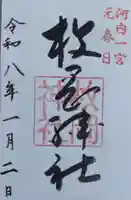 河内一宮
元春日
枚岡神社
令和八年一月二日